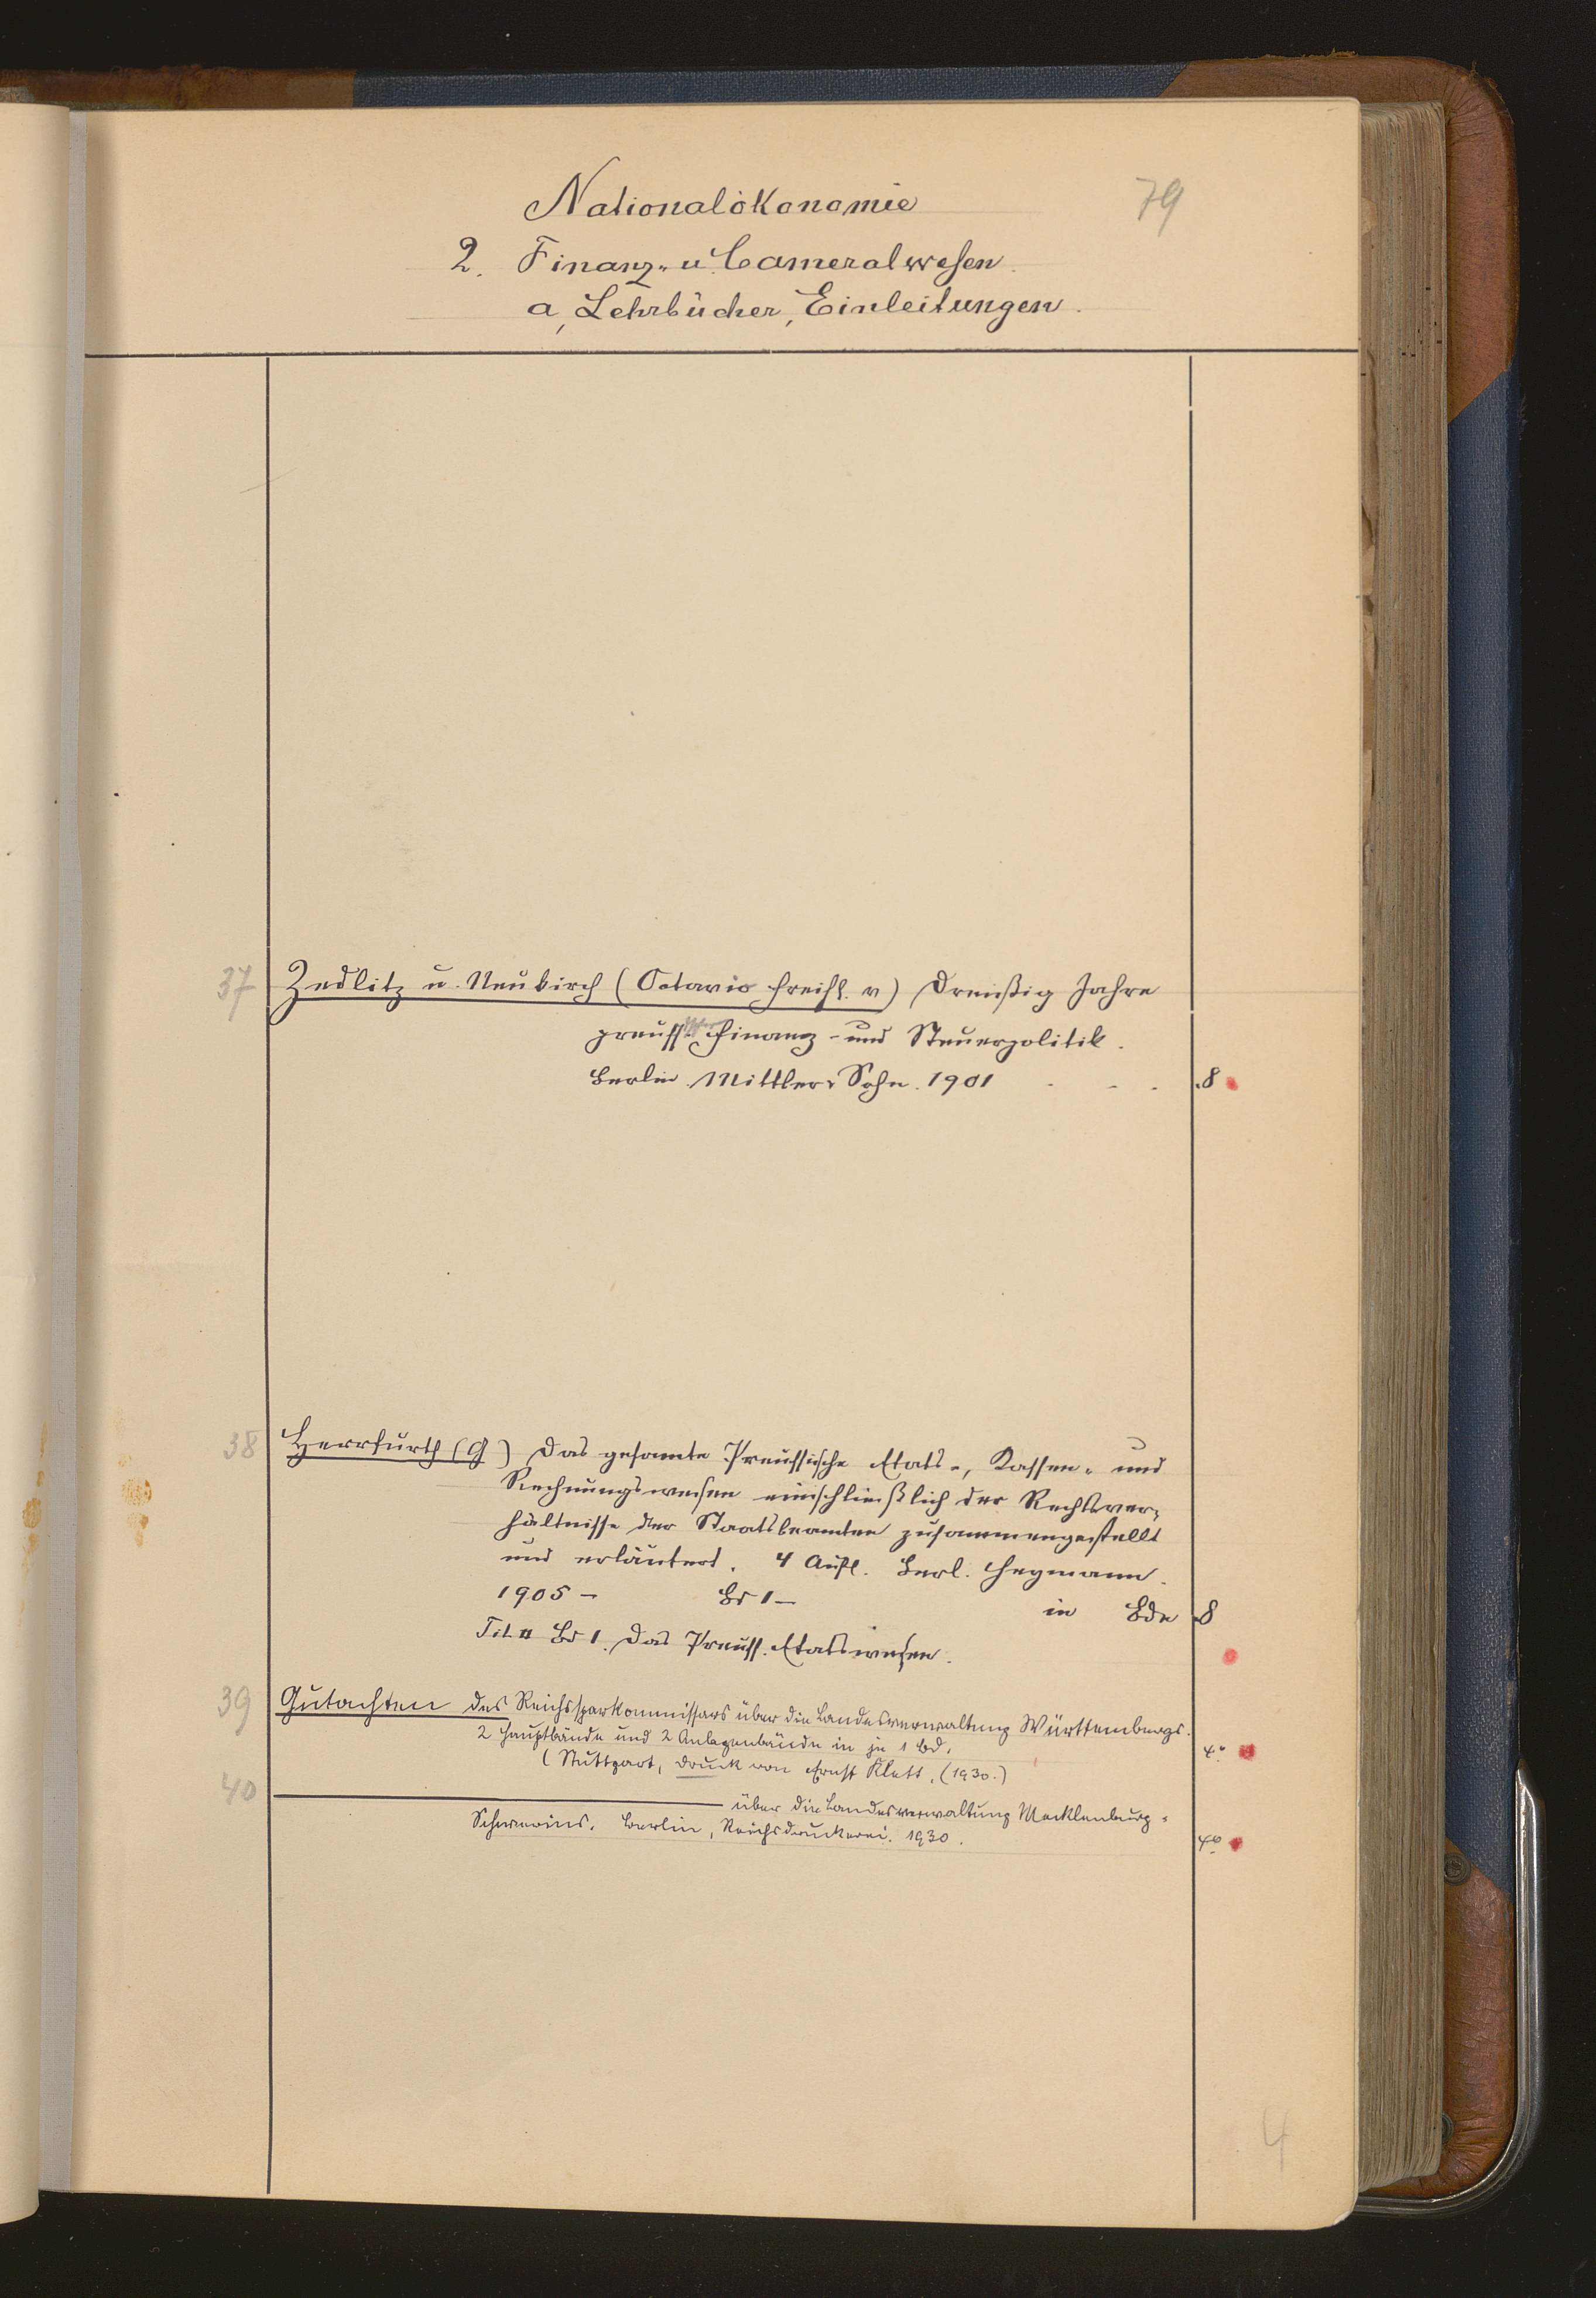 79
Nationalökonomie
2. Finanz- u Cameralwesen.
a, Lehrbücher, Einleitungen.
37 Zedlitz u. Neukirch (Octavio Freih. v) Dreißig Jahre
preuss. Finanz- und Steuerpolitik.
Berlin. Mittler & Sohn. 1901 . . . 8
38 Herrfurth (G) Das gesamte Preussische Etats-, Kassen- und
Rechnungswesen einschließlich der Rechtsver-
hältnisse der Staatsbeamten zusammengestellt
und erläutert. 4 Aufl. Berl. Heymann.
1905 – Bd 1 – in Bde 8
Tit. Bd 1. Das Preuss. Etatswesen.
39 Gutachten des Reichssparkommissars über die Landesverwaltung Württembergs.
2 Hauptbände und 2 Anlagenbände in je 1 Bd. 4°
(Stuttgart, Druck von Ernst Klett, (1930.)
40 ——— über die Landesverwaltung Mecklenburg-
Schwerins. Berlin, Reichsdruckerei. 1930. 4°
4